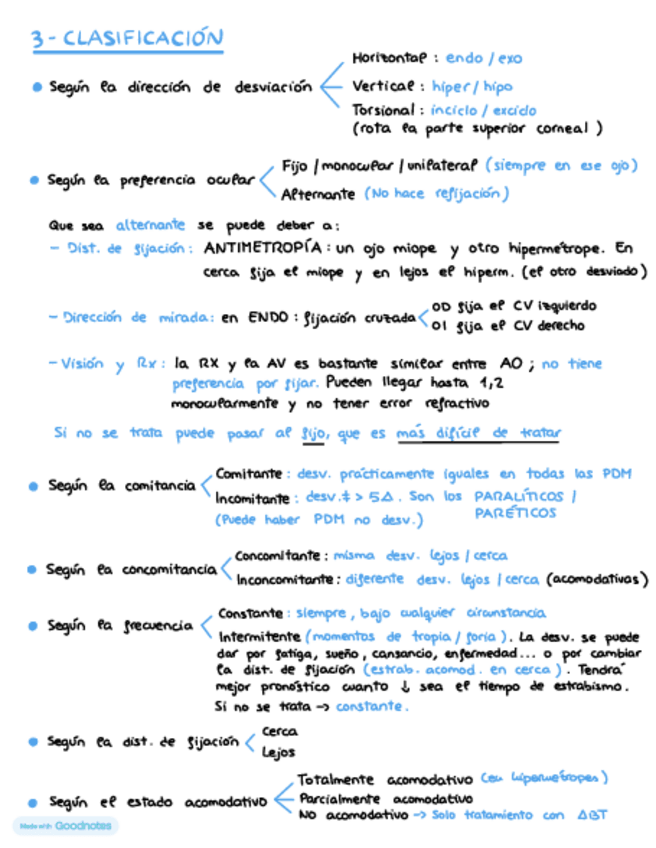 3- CLASIFICACIÓN
Horizontal : endo / exo
• Según la dirección de desviación
Vertical : hiper / hipo
Torsional : inciclo / exciclo
(rota la parte superior corneal )
Fijo / monocular / unilateral (siempre en ese ojo)
• Según la preferencia ocular
Alternante (No hace refijación)
Que sea alternante se puede deber a:
- Dist. de fijación: ANTIMETROPÍA: un ojo miope y otro hipermétrope. En
cerca fija el miope y en lejos el hiperm. (el otro desviado)
OD fija el CV izquierdo
- Dirección de mirada: en ENDO : fijación cruzada
OI fija el CV derecho
- Visión y Rx: la RX y la AV es bastante similar entre AO ; no tiene
preferencia por fijar. Pueden llegar hasta 1,2
monocularmente y no tener error refractivo
Si no se trata puede pasar al fijo, que es más difícil de tratar
Comitante : desv. prácticamente iguales en todas las PDM
• Según la comitancia
Incomitante : desv.≠ > 5Δ. Son los PARALÍTICOS /
(Puede haber PDM no desv.) PARÉTICOS
Concomitante : misma desv. lejos / cerca
• Según la concomitancia
Inconcomitante : diferente desv. lejos / cerca (acomodativas)
Constante : siempre, bajo cualquier circunstancia
• Según la frecuencia
Intermitente (momentos de tropia / foria). La desv. se puede
dar por fatiga, sueño, cansancio, enfermedad... o por cambiar
la dist. de fijación (estrab. acomod. en cerca). Tendrá
mejor pronóstico cuanto ↓ sea el tiempo de estrabismo.
Si no se trata → constante.
Cerca
• Según la dist. de fijación
Lejos
Totalmente acomodativo (en hipermétropes)
• Según el estado acomodativo
Parcialmente acomodativo
No acomodativo → Solo tratamiento con ΔBT
Made with Goodnotes